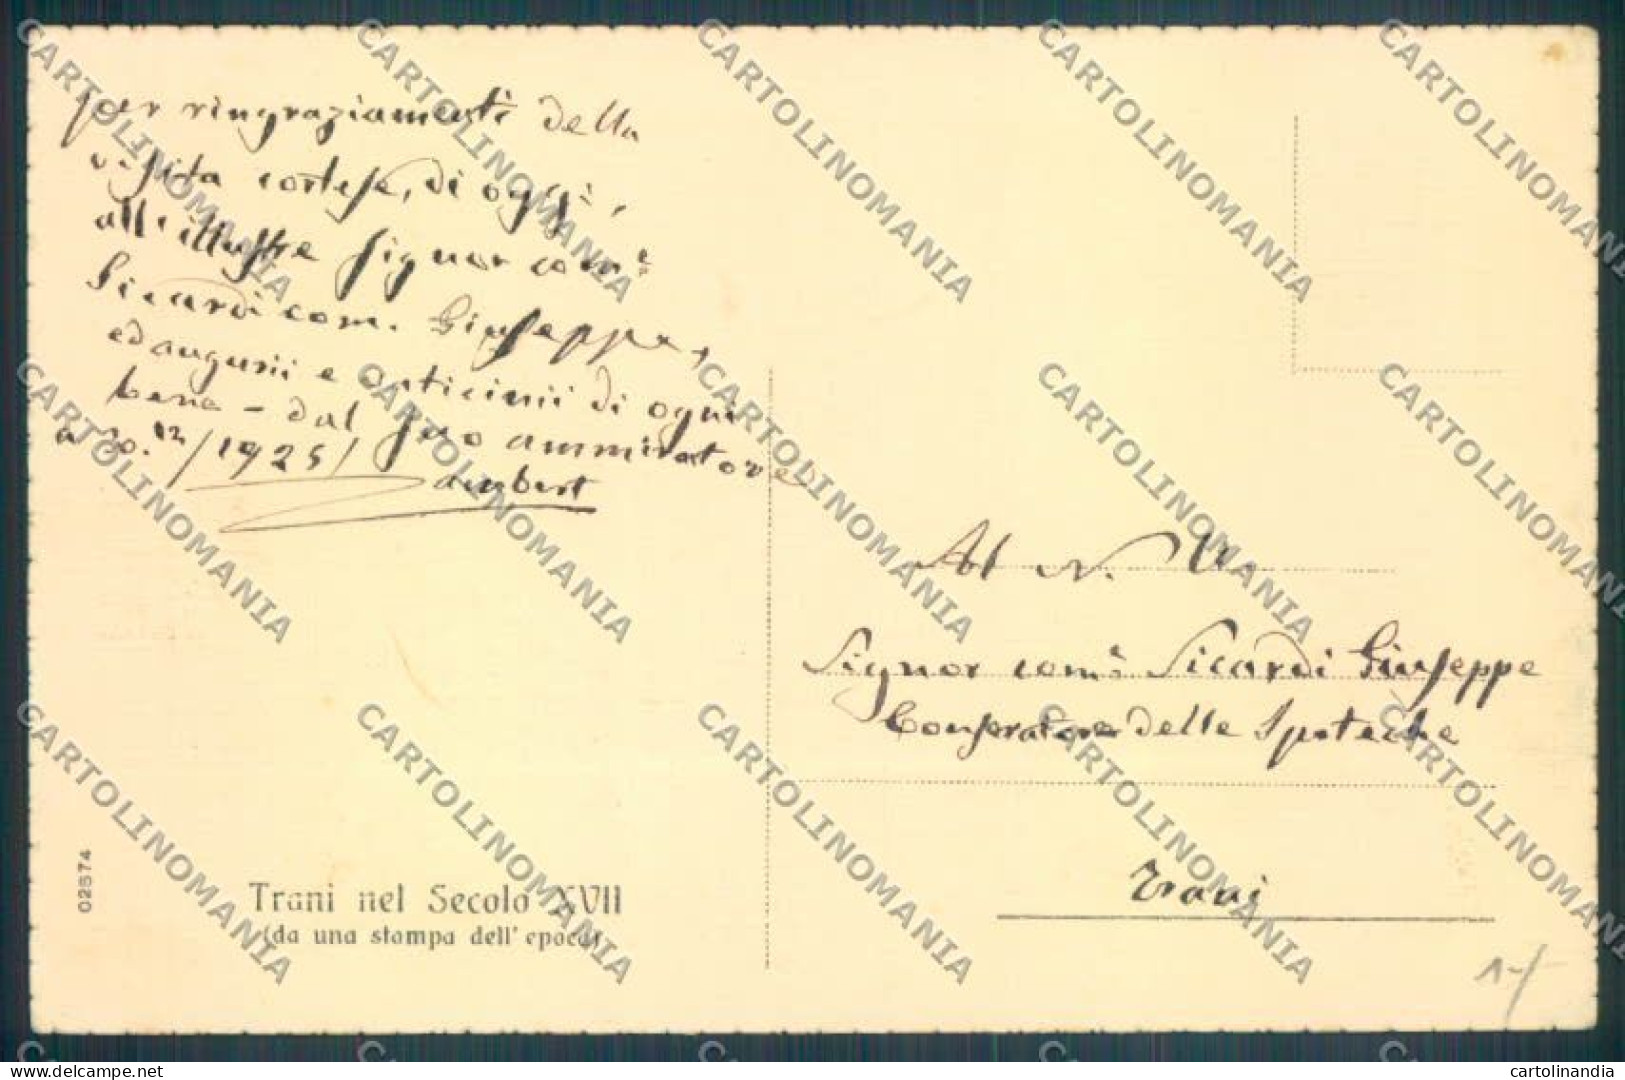 per ringraziamenti della
visita cortese, di oggi,
all'illustre Signor com.e
Sicardi com. Giuseppe,
ed augurii e vaticinii di ogni
bene - dal suo ammiratore
a 30.12/1925/
Al N. U.
Signor com.e Sicardi Giuseppe
Conservatore delle Ipoteche
Trani
02874
Trani nel Secolo XVII
(da una stampa dell'epoca)
CARTOLINOMANIA
delcampe.net
cartolinandia